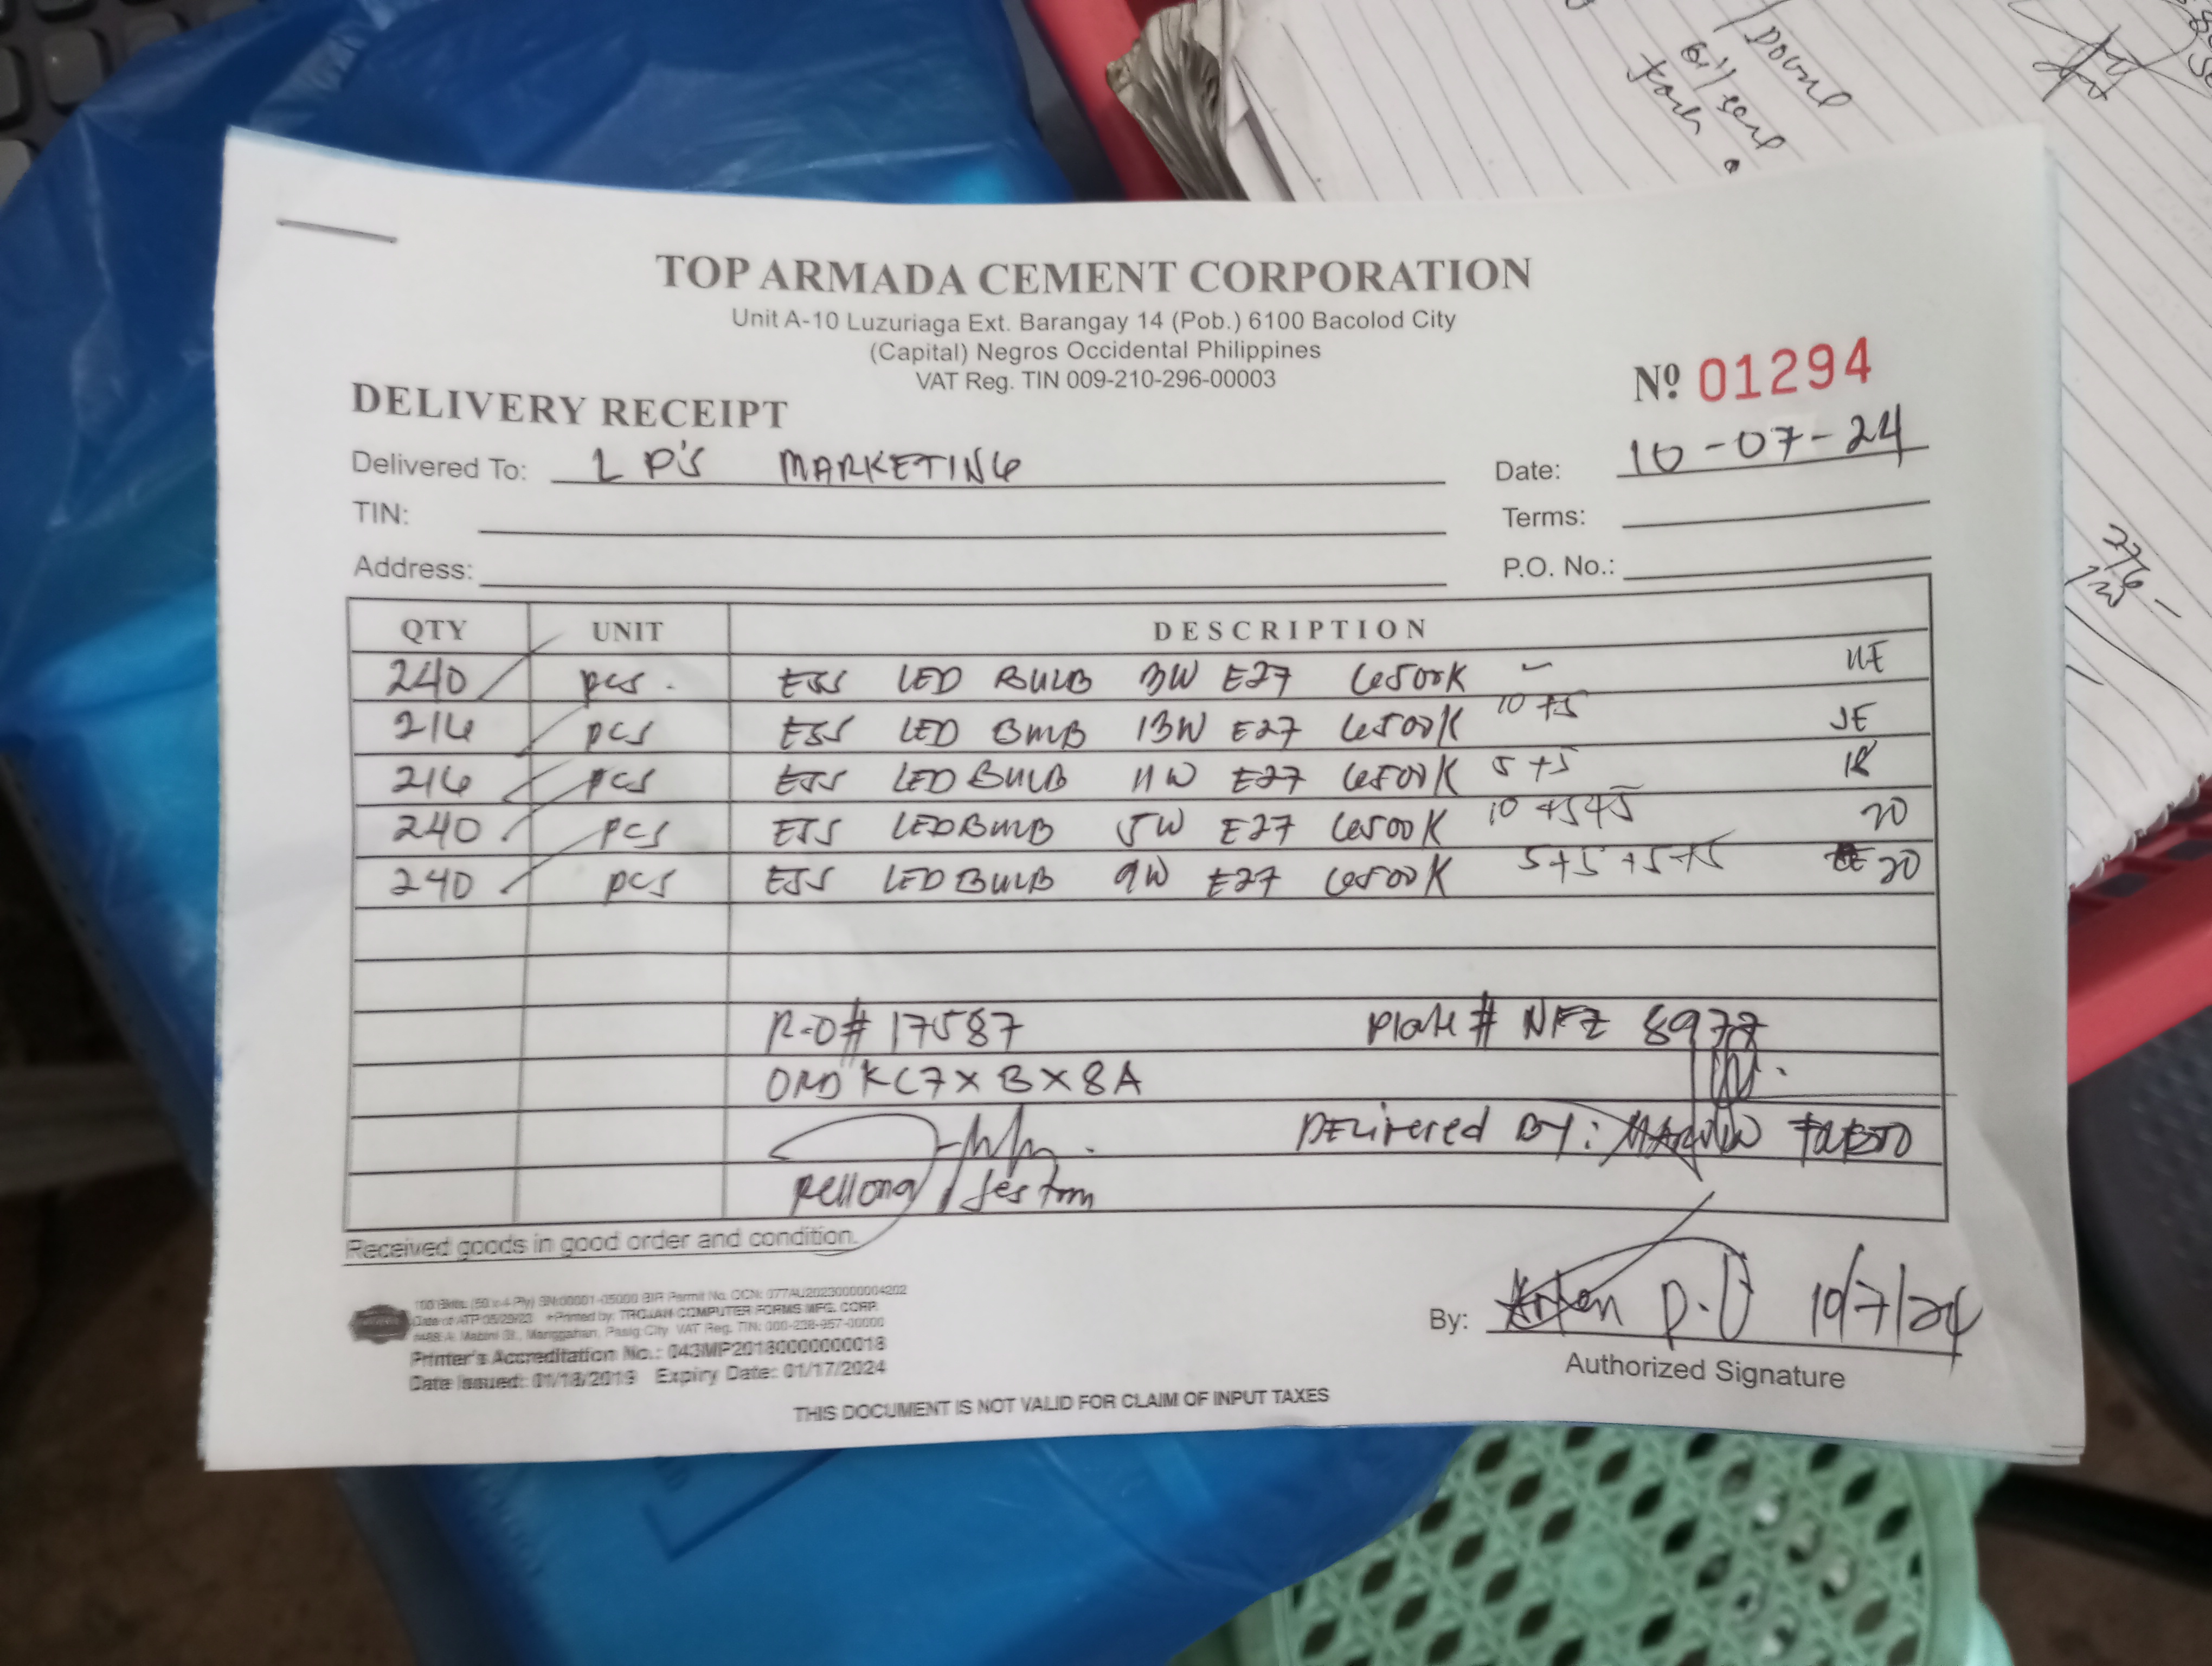 Down
TOP ARMADA CEMENT CORPORATION
Unit A-10 Luzuriaga Ext. Barangay 14 (Pob.) 6100 Bacolod City
(Capital) Negros Occidental Philippines
VAT Reg. TIN 009-210-296-00003
DELIVERY RECEIPT
Nº 01294
Delivered To: LP'S MARKETING
Date: 10-07-24
TIN:
Terms:
Address:
P.O. No.:
QTY UNIT DESCRIPTION
240 pcs. ESS LED BULB 3W E27 6500K
216 pcs ESS LED BULB 13W E27 6500K 10+5
216 pcs ESS LED BULB 11W E27 6500K 5+5 18
240 pcs ESS LED BULB 5W E27 6500K 10+5+5 20
240 pcs ESS LED BULB 9W E27 6500K 5+5+5+5 20
R-O# 17587 Plate # NFZ 8977
ORD KC7XBX8A
DELivered BY:
Received goods in good order and condition.
100 Bklts. (50 x 4 Ply) SN:00001-05000 BIR Permit No. OCN: 077AU20230000004202
Date of ATP 05/29/23 Printed by: TROJAN COMPUTER FORMS MFG. CORP.
Mabini St., Manggahan, Pasig City VAT Reg. TIN: 000-238-957-00000
Printer's Accreditation No.: 043MP20180000000018
Date Issued: 01/18/2019 Expiry Date: 01/17/2024
By: 10/7/24
Authorized Signature
THIS DOCUMENT IS NOT VALID FOR CLAIM OF INPUT TAXES